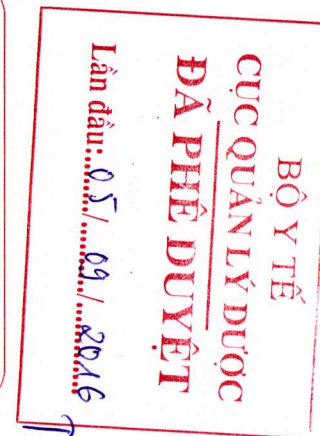 BỘ Y TẾ
CỤC QUẢN LÝ DƯỢC
ĐÃ PHÊ DUYỆT
Lần đầu: 05 / 09 / 2016